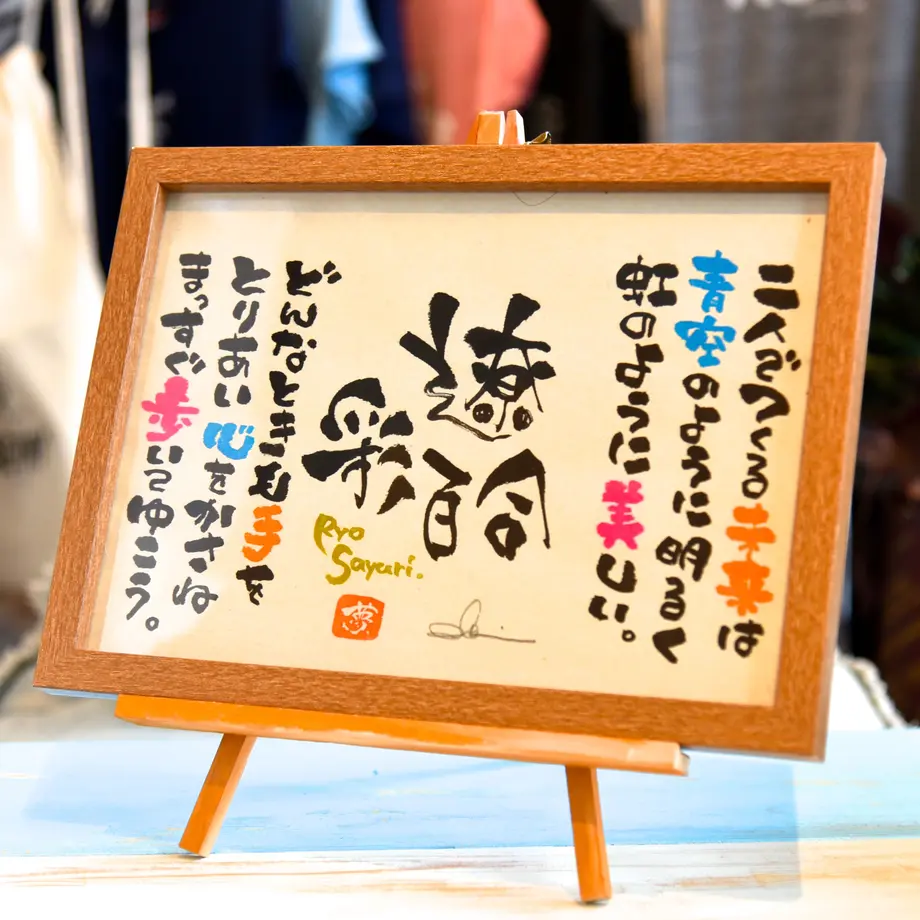 二人でつくる未来は
青空のように明るく
虹のように美しい。
遼
彩百合
Ryo
Sayuri.
夢
どんなときも手を
とりあい心をかさね
まっすぐ歩いてゆこう。